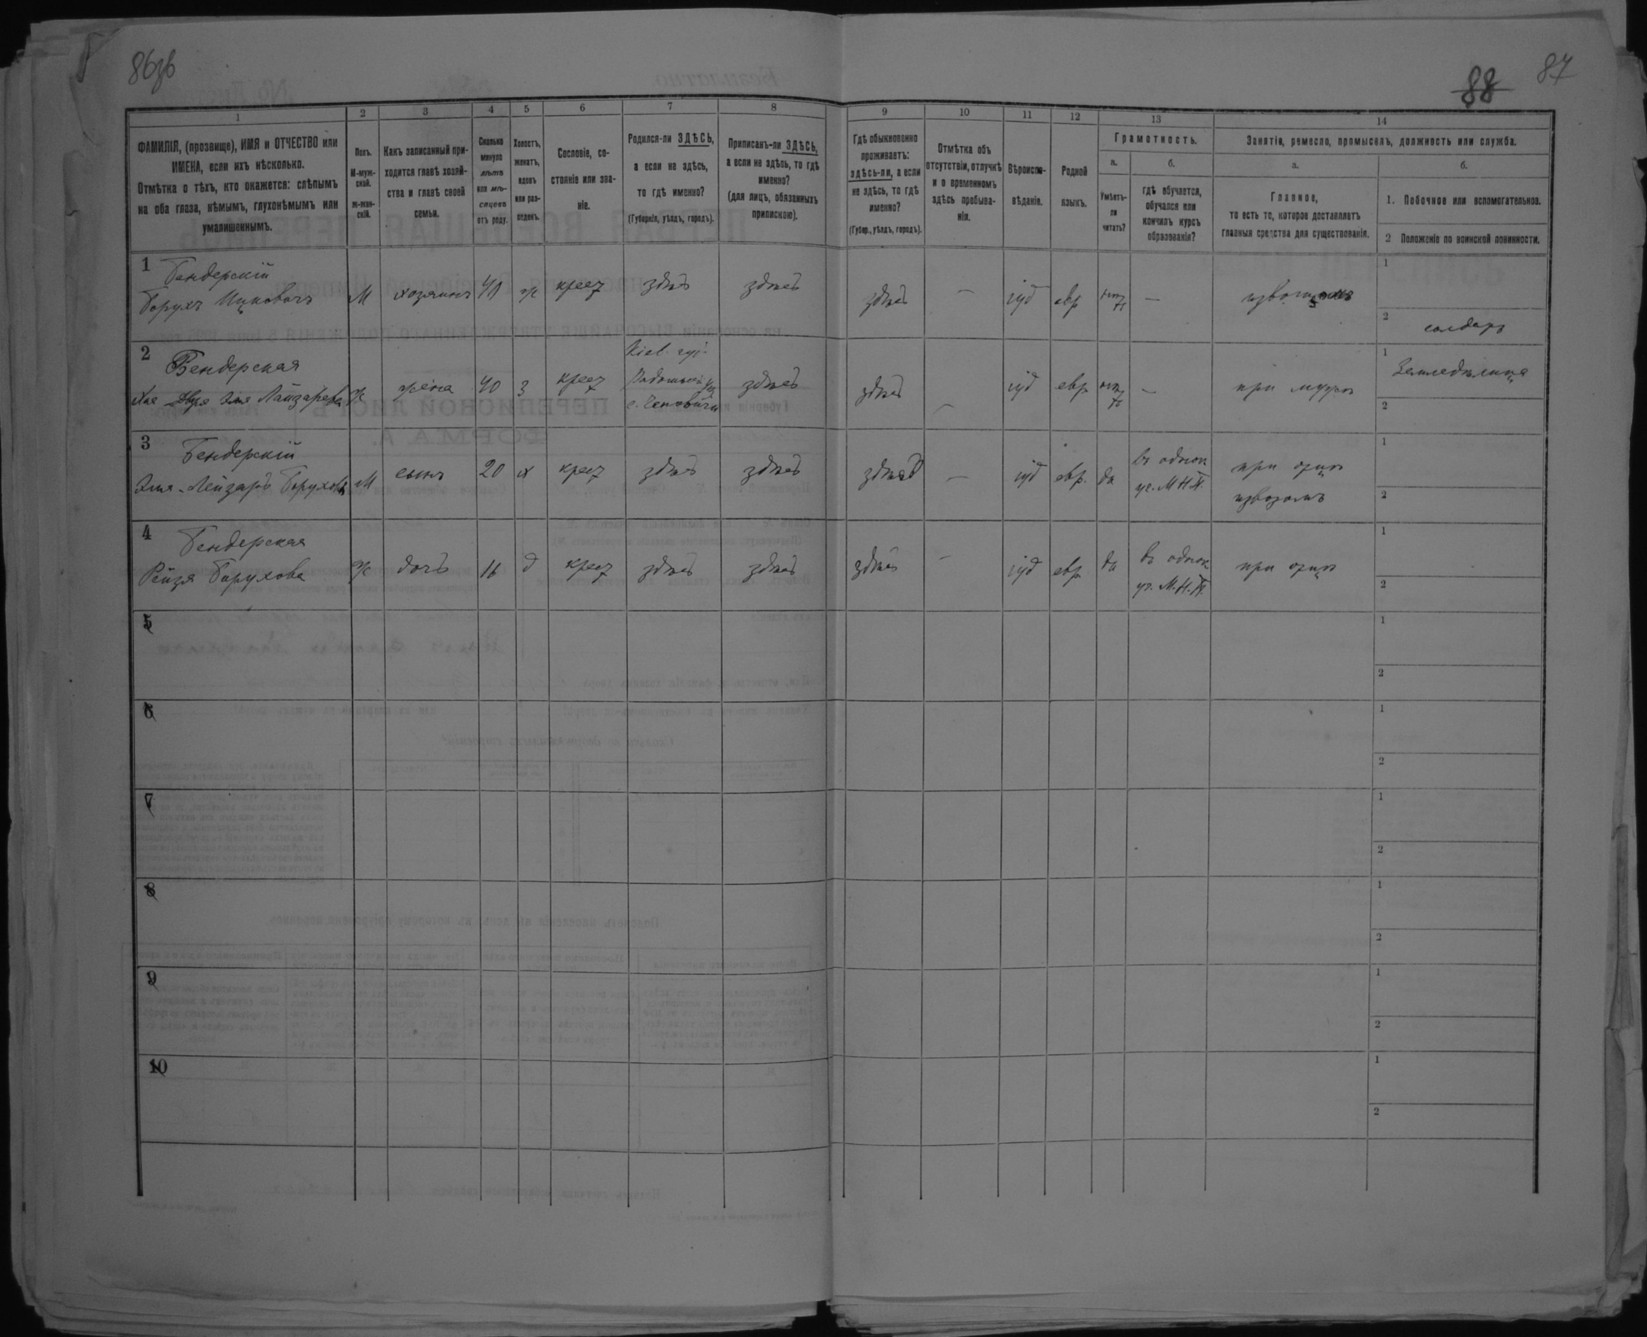 86об
88 87
1 2 3 4 5 6 7 8 9 10 11 12 13 14
ФАМИЛІЯ, (прозвище), ИМЯ и ОТЧЕСТВО или
ИМЕНА, если ихъ нѣсколько.
Отмѣтка о тѣхъ, кто окажется: слѣпымъ
на оба глаза, нѣмымъ, глухонѣмымъ или
умалишеннымъ.
Полъ.
М-муж-
ской.
ж-жен-
скій.
Какъ записанный при-
ходится главѣ хозяй-
ства и главѣ своей
семьи.
Сколько
минуло
лѣтъ
или мѣ-
сяцевъ
отъ роду.
Холостъ,
женатъ,
вдовъ
или раз-
веденъ.
Сословіе, со-
стояніе или зва-
ніе.
Родился-ли ЗДѢСЬ,
а если не здѣсь,
то гдѣ именно?
(Губернія, уѣздъ, городъ).
Приписанъ-ли ЗДѢСЬ,
а если не здѣсь, то гдѣ
именно?
(для лицъ, обязанныхъ
припискою).
Гдѣ обыкновенно
проживаетъ:
здѣсь-ли, а если
не здѣсь, то гдѣ
именно?
(Губер., уѣздъ, городъ).
Отмѣтка объ
отсутствіи, отлучкѣ
и о временномъ
здѣсь пребыва-
ніи.
Вѣроиспо-
вѣданіе.
Родной
языкъ.
Грамотность.
а.
Умѣетъ-
ли
читать?
б.
гдѣ обучается,
обучался или
кончилъ курсъ
образованія?
Занятіе, ремесло, промыселъ, должность или служба.
а.
Главное,
то есть то, которое доставляетъ
главныя средства для существованія.
б.
1. Побочное или вспомогательное.
2 Положеніе по воинской повинности.
1 Бендерскій
Борухъ Ицковичъ М хозяинъ ж крест здѣсь здѣсь здѣсь — іуд евр нѣтъ — извощикъ
1
2 солдатъ
2 Бендерская
Лайзарева ж жена 40 з крест
Кіев. губ.
Радомысл. у.
здѣсь здѣсь — іуд евр нѣтъ — при мужѣ
1 Земледѣлица
2
3 Бендерскій
Эля-Лейзаръ Борухов М сынъ 20 х крест здѣсь здѣсь здѣсь — іуд евр. да
въ однок
уч. М.Н.П.
при отцѣ
извозомъ
1
2
4 Бендерская
Рейзя Борухова ж дочь 16 д крест здѣсь здѣсь здѣсь — іуд евр. да
въ однок
уч. М.Н.П.
при отцѣ
1
2
5 1
2
6 1
2
7 1
2
8 1
2
9 1
2
10 1
2